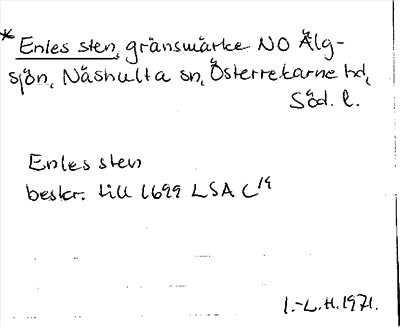 *Enles sten, gränsmärke NO Älg-
sjön, Näshulta sn, Österrekarne hd,
Söd. l.
Enles sten
beskr. till 1699 LSA C¹⁴
I.-L.H.1971.